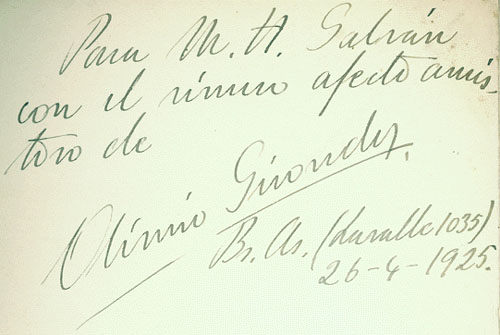 Para M. H. Galván
con el sincero afecto amis-
toso de
Olimio Girondo.
Bs. As. (Lavalle 1035)
26-4-1925.